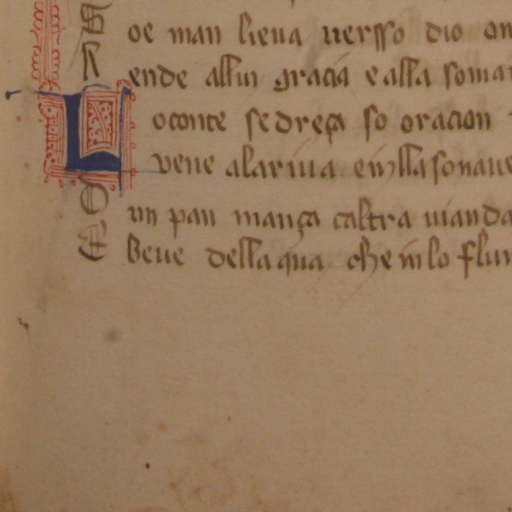 S oe man lieva versso dio on
R ende allui gracia e alla soma
L o conte se dreça so oracion
vene ala riva e in lla so nave
D un pan mança caltra vianda
E beve dell aqua che in lo flu